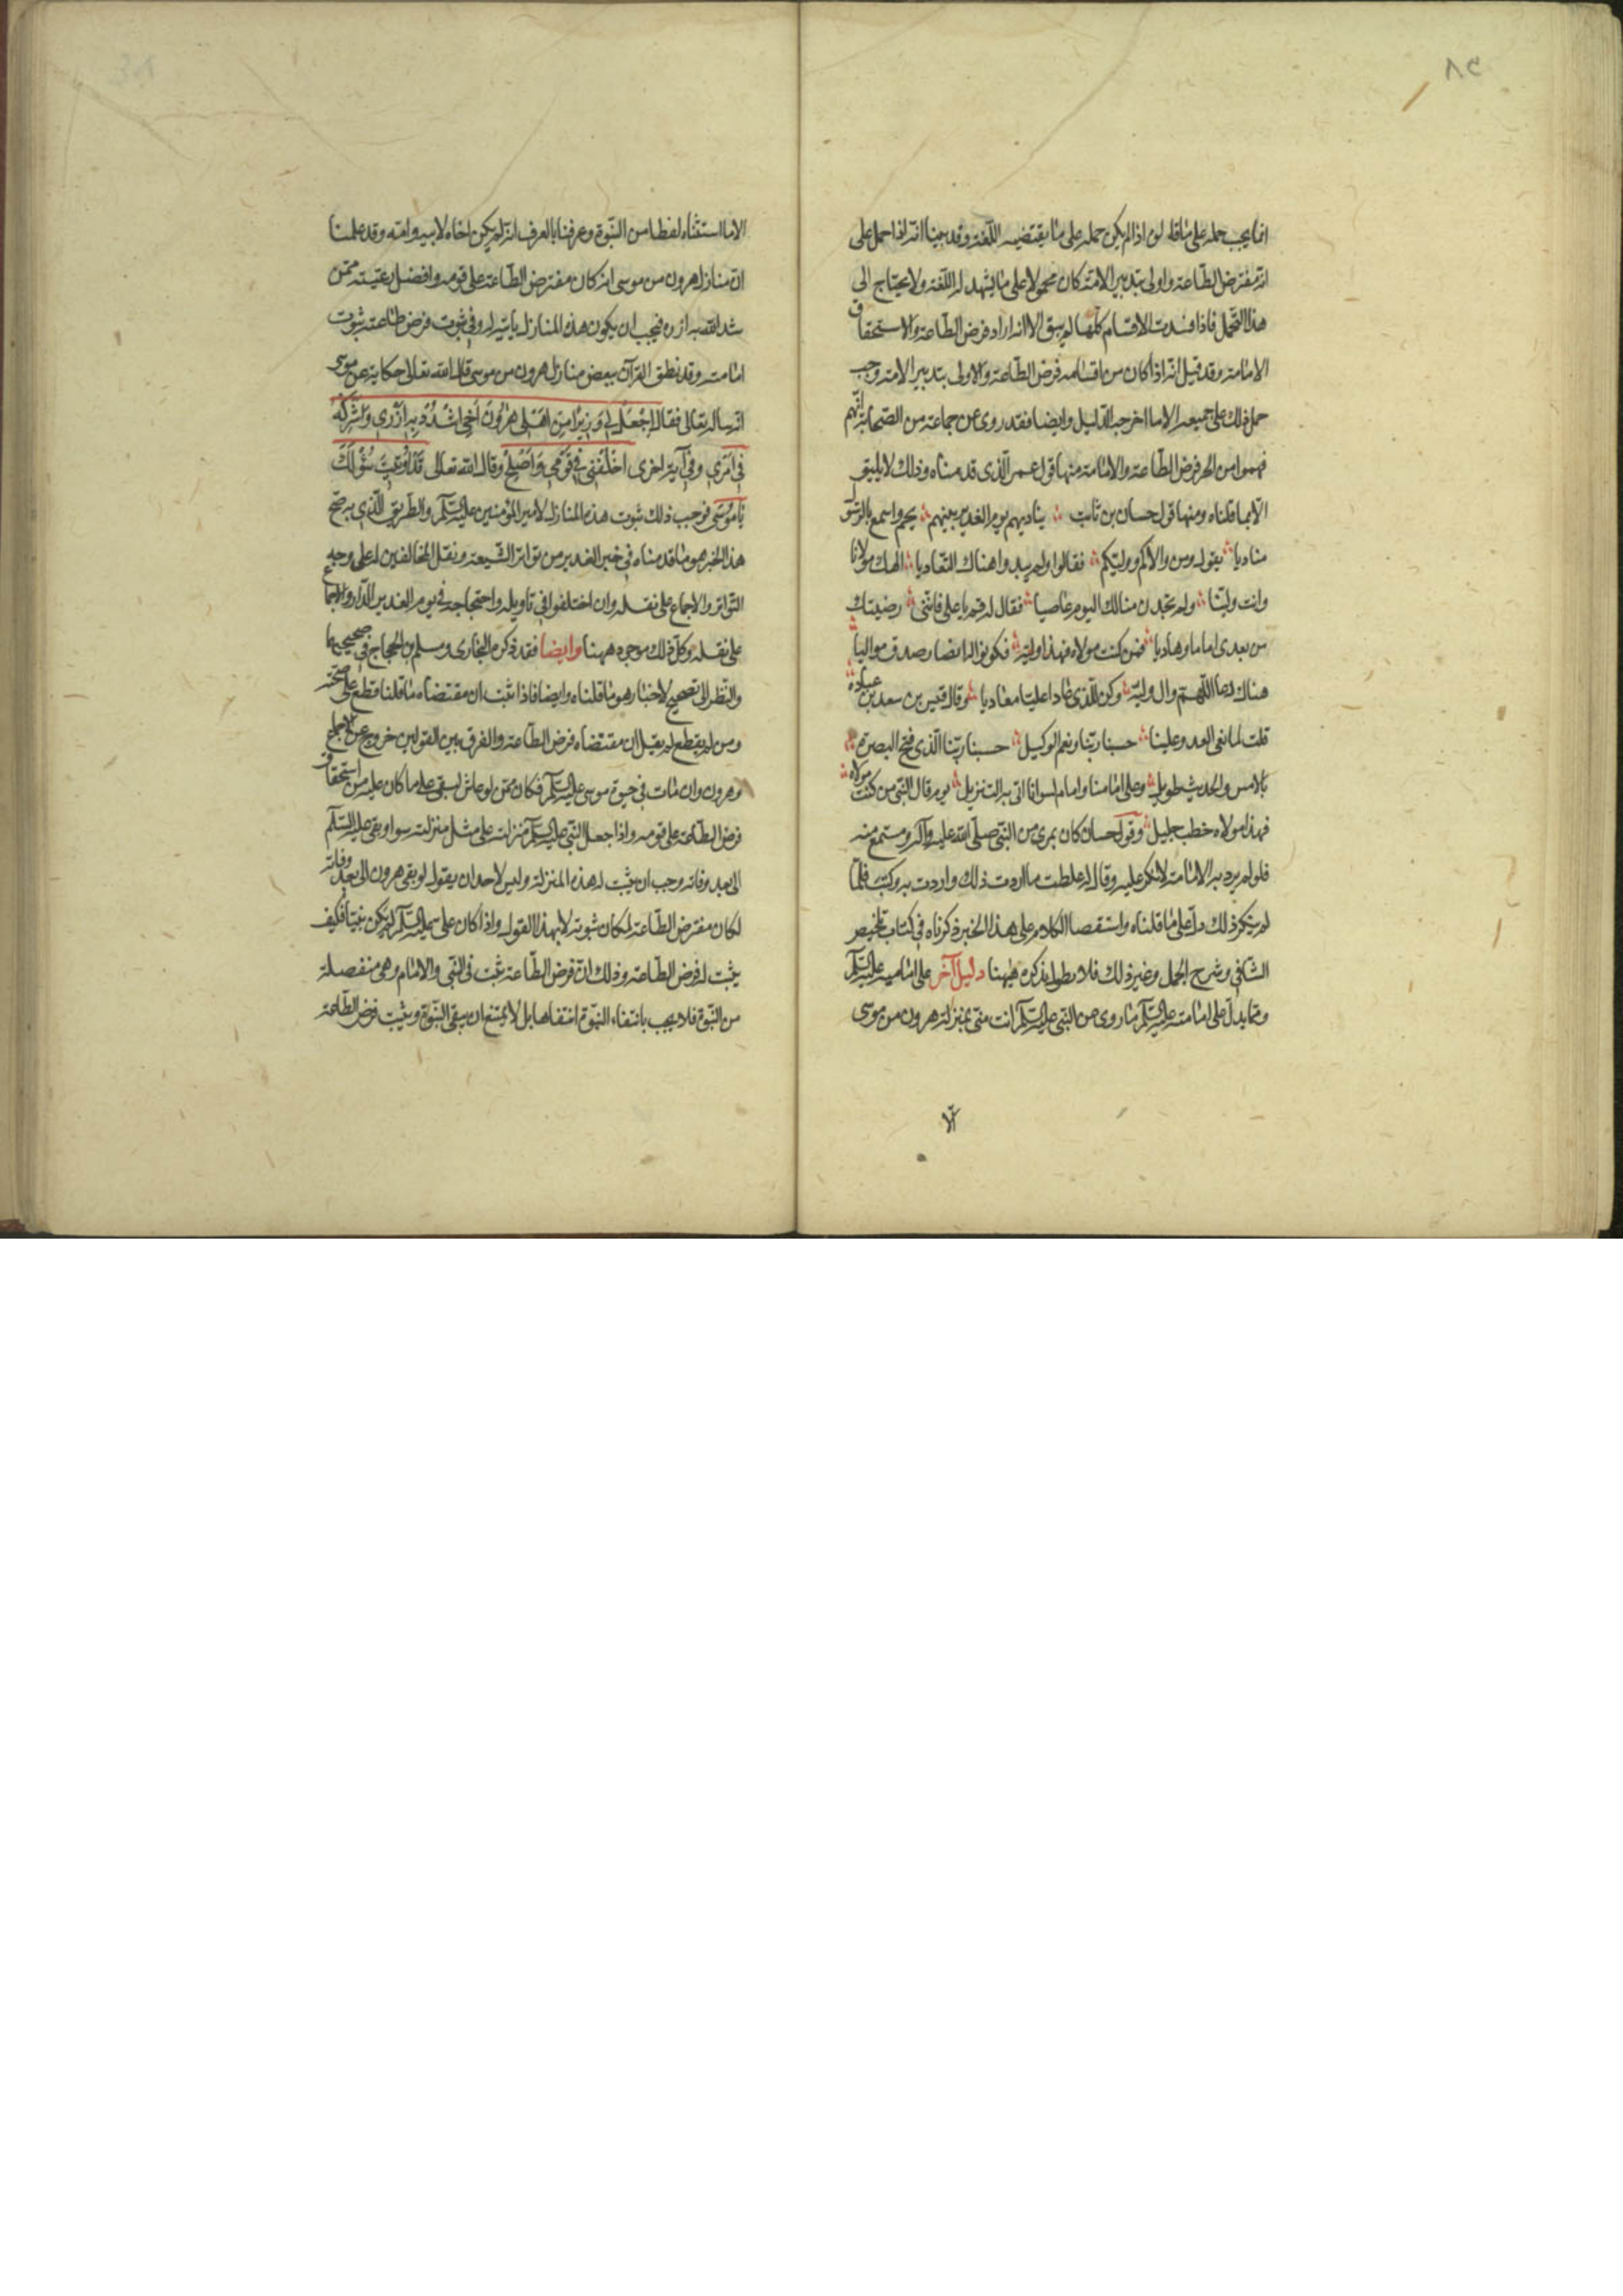 ٨٢
انما يجب حمله على ما قاله لو اذا لم يكن حمله على ما يقتضيه اللّغة وقد بينا انه اذا حمل على
انه مفترض الطّاعة واولى بتدبير الامّة كان محمولا على ما يشهد له اللّغة ولا يحتاج الى
هذا التّحمل فاذا فسدت الاقسام كلّها لم يبق الا انه اراد فرض الطّاعة والاستحقاق
الامامة وقد قيل انه اذا كان من اقسامه فرض الطّاعة والاولى بتدبير الامة وجب
حمل ذلك على جميعه الا ما اخرجه الدّليل وايضا فقد روى عن جماعة من الصّحابة انّهم
فهموا من الخبر فرض الطّاعة والامامة منها قول عمر الّذى قدمناه وذلك لا يليق
الّا بما قلناه ومنها قول حسان بن ثابت يناديهم يوم الغدير نبيهم بخم واسمع بالرّسول
مناديا يقول ومن والاكم ووليّكم فقالوا ولم يبدوا هناك التّعاديا الهك مولانا
وانت وليّنا ولم تجدن منا لك اليوم عاصيا فقال له قم يا على فانّنى رضيتك
من بعدى اماما وهاديا فمن كنت مولاه فهذا وليّه فكونوا له انصار صدق مواليا
هناك دعا اللّهمّ وال وليّه وكن للّذى عادا عليّا معاديا وقال قيس بن سعد بن عبادة
قلت لما بغى العدو علينا حسبنا ربّنا ونعم الوكيل حسبنا ربّنا الّذى فتح البصرة
بالامس والحديث طويل وعلى امامنا وامام لسوانا اتى به التنزيل يوم قال النّبى من كنت مولاه
فهذا مولاه خطب جليل وقول حسان كان بمرى من النّبى صلّى الله عليه وآله ومستمع منه
فلو لم يرد به الامامة لانكر عليه وقال له غلطت ما اردت ذلك واردت به وكيت فلمّا
لم ينكر ذلك دلّ على ما قلناه واستقصا الكلام على هذا الخبر ذكرناه فى كتاب تلخيص
الشّافى وشرح الجمل وغير ذلك فلا نطول بذكره هيهنا دليل آخر على امامته عليه السّلام
وممّا يدلّ على امامته عليه السّلام ما روى عن النّبى عليه السّلام انت منّى بمنزلة هرون من موسى
الّا
الا ما استثناه لفظا من النّبوّة وعرفنا بالعرف انه لم يكن اخاه لابيه وامّه وقد علمنا
انّ منازل هرون من موسى انه كان مفترض الطّاعة على قومه وافضل رعيّته ممّن
شد الله به ازره فيجب ان يكون هذه المنازل ثابتة له وفى ثبوت فرض طاعته ثبوت
امامته وقد نطق القرآن ببعض منازل هرون من موسى قال الله تعالى حكاية عن موسى
انه ساله تعالى فقال اِجْعَلْ لِي وَزِيرًا مِنْ اَهْلِى هٰرُونَ أَخِى اشْدُدْ بِهِ اَزْرِي وَاَشْرِكْهُ
فِى اَمْرِي وفى آية اخرى اخْلُفْنِى فِى قَوْمِي وَاَصْلِحْ وقال الله تعالى قَدْ اُوتِيتَ سُؤْلَكَ
يَا مُوسَى فوجب ذلك ثبوت هذه المنازل لامير المؤمنين عليه السّلام والطّريق الّذى به صحّ
هذا الخبر هو ما قدمناه فى خبر الغدير من تواتر الشّيعة ونقل المخالفين له على وجه
التّواتر والاجماع على نقله وان اختلفوا فى تاويله واحتجاجه فى يوم الغدير الدّار والاجماع
على نقله وكلّ ذلك موجود ههنا وايضا فقد ذكره البخارى ومسلم بن الحجاج فى صحيحيهما
والنّظر الى تصحيح الاخبار هو ما قلناه وايضا فاذا ثبت ان مقتضاه ما قلنا قطع على صحّته
ومن لم يقطع لم يقل ان مقتضاه فرض الطّاعة والفرق بين القولين خروج عن الاجماع
وهرون وان مات فى حيوة موسى عليه السّلام فكان ممّن لو عاش لبقى على ما كان عليه من استحقاق
فرض الطّاعة على قومه واذا جعل النّبى عليه السّلام منزلته على مثل منزلته سواء وبقى عليه السّلام
الى بعد وفاته وجب ان يثبت له هذه المنزلة وليس لاحد ان يقول لو بقى هرون الى بعد وفاته
لكان مفترض الطّاعة لمكان نبوته لا بهذا القول واذا كان على عليه السّلام لم يكن نبيّا فكيف
يثبت له فرض الطّاعة وذلك انّ فرض الطّاعة يثبت فى النّبى والامام وهى منفصلة
من النّبوّة فلا يجب بانتفاء النبوّة انتفاها بل لا يمتنع ان ينتفى النّبوّة ويثبت فرض الطّاعة